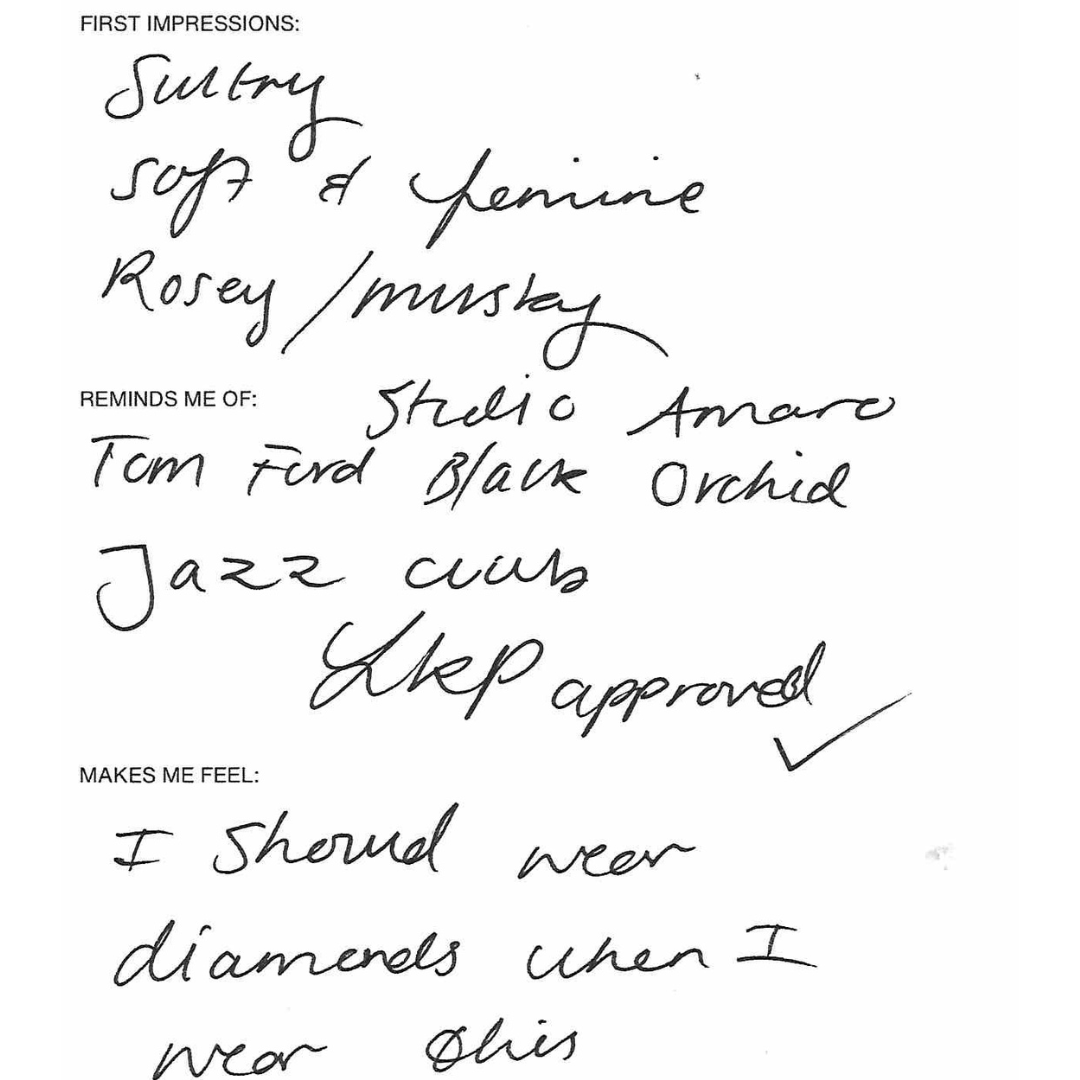 FIRST IMPRESSIONS:
Sultry
Soft & feminine
Rosey / musky
REMINDS ME OF: Studio Amaro
Tom Ford Black Orchid
Jazz club
LKP approved ✓
MAKES ME FEEL:
I Should wear
diamonds when I
wear this